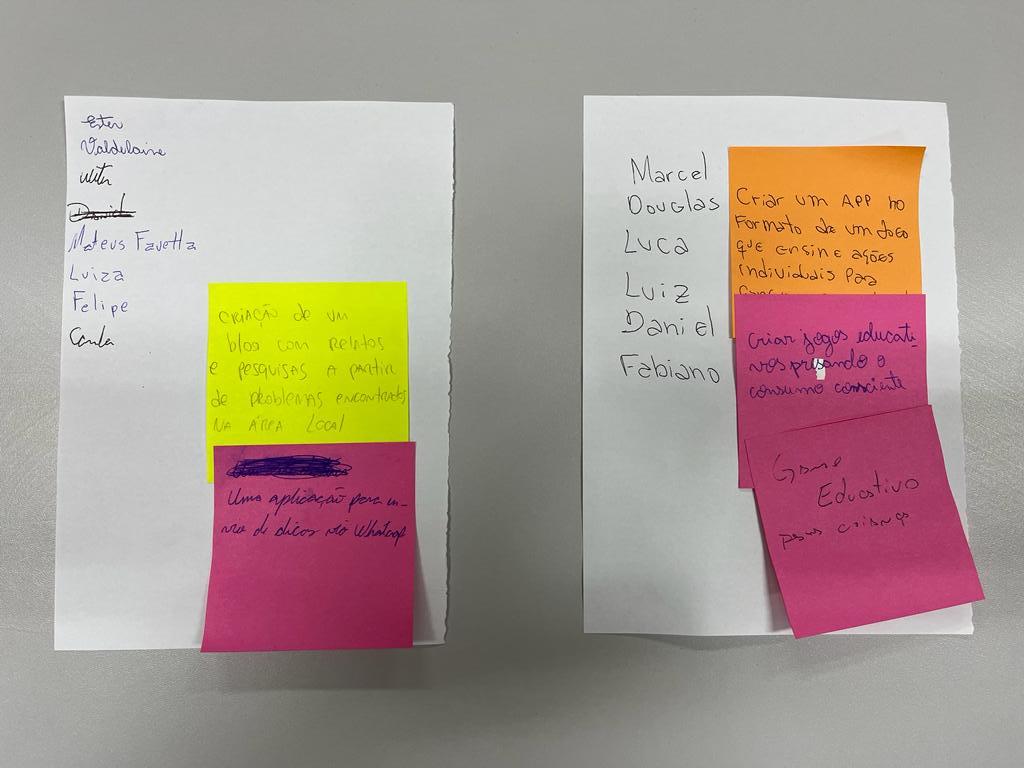 Ester
Valdilaine
Mateus Favetta
Luiza
Felipe
Carla
CRIAÇÃO de UM
blog com Relatos
e PESQUISAS A PARTIR
de PROBLEMAS ENCONTRADOS
NA ÁREA LOCAL
Uma aplicação para en-
vio de dicas via Whatsapp
Marcel
Douglas
Luca
Luiz
Daniel
Fabiano
Criar um APP no
Formato de um Jogo
que ensine ações
individuais para
criar jogos educati-
vos prezando o
consumo consciente
Game
Educativo
para crianças